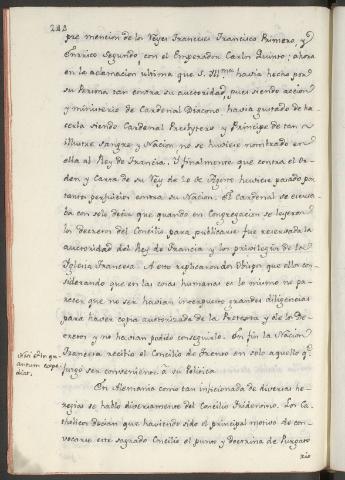 212
pre mencion de los Reyes Franceses Francisco Primero, y
Enrrico Segundo, con el Emperador Carlos Quinto; ahora
en la aclamacion ultima que S. Ill.ma havia hecho por
su Persona tan contra su auctoridad, pues siendo accion
y ministerio de Cardenal Diacono, havia gustado de ha-
cerla siendo Cardenal Presbytero y Principe de tan
illustre sangre y Nacion no se huviese nombrado en
ella al Rey de Francia. Y finalmente que contra el Or-
den y Carta de su Rey de 20 de Agosto huviese pasado por
tanto perjuicio contra su Nacion. El Cardenal se escusa-
ba con solo decir que quando en Congregacion se leyeron
los decretos del Concilio, para publicarse fue reservada la
auctoridad del Rey de Francia y los privilegios de la
Iglesia Francesa. A esto replicaron los Obispos que ella con-
siderando que en las cosas humanas es lo mismo no pa-
recer que no ser havian interpuesto grandes diligencias
para haver copia auctorizada de la Protesta y de los De-
cretos y no havian podido conseguirlo. En fin la Nacion
Francesa recibio el Concilio de Trento en solo aquello q.e
juzgò ser conveniente à su Politica.
En Alemania como tan inficionada de diversas he-
regias se hablo diversamente del Concilio Tridentino. Los Ca-
tholicos decian que haviendo sido el principal motivo de con-
vocarse este sagrado Concilio el punto y doctrina de Purgato
rio